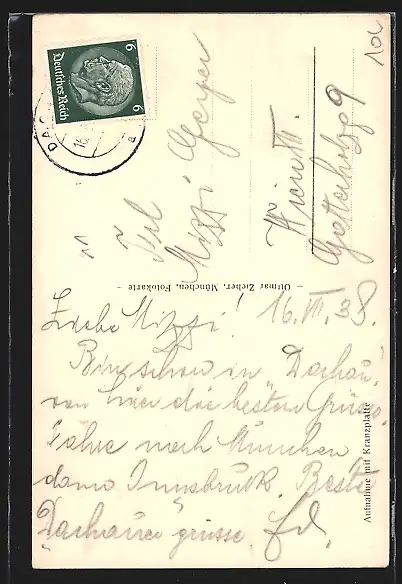 Deutsches Reich
6
6
DAC
16.
a
10
Frl
Mizzi Geyer
Wien III
9
– Ottmar Zieher, München, Fotokarte –
Liebe Mizzi! 16. VII. 38.
Bin schon in Dachau,
von hier die besten Grüsse.
Fahre nach München
dann Innsbruck. Beste
Dachauer grüsse. Ed.
Aufnahme mit Kranzplatte